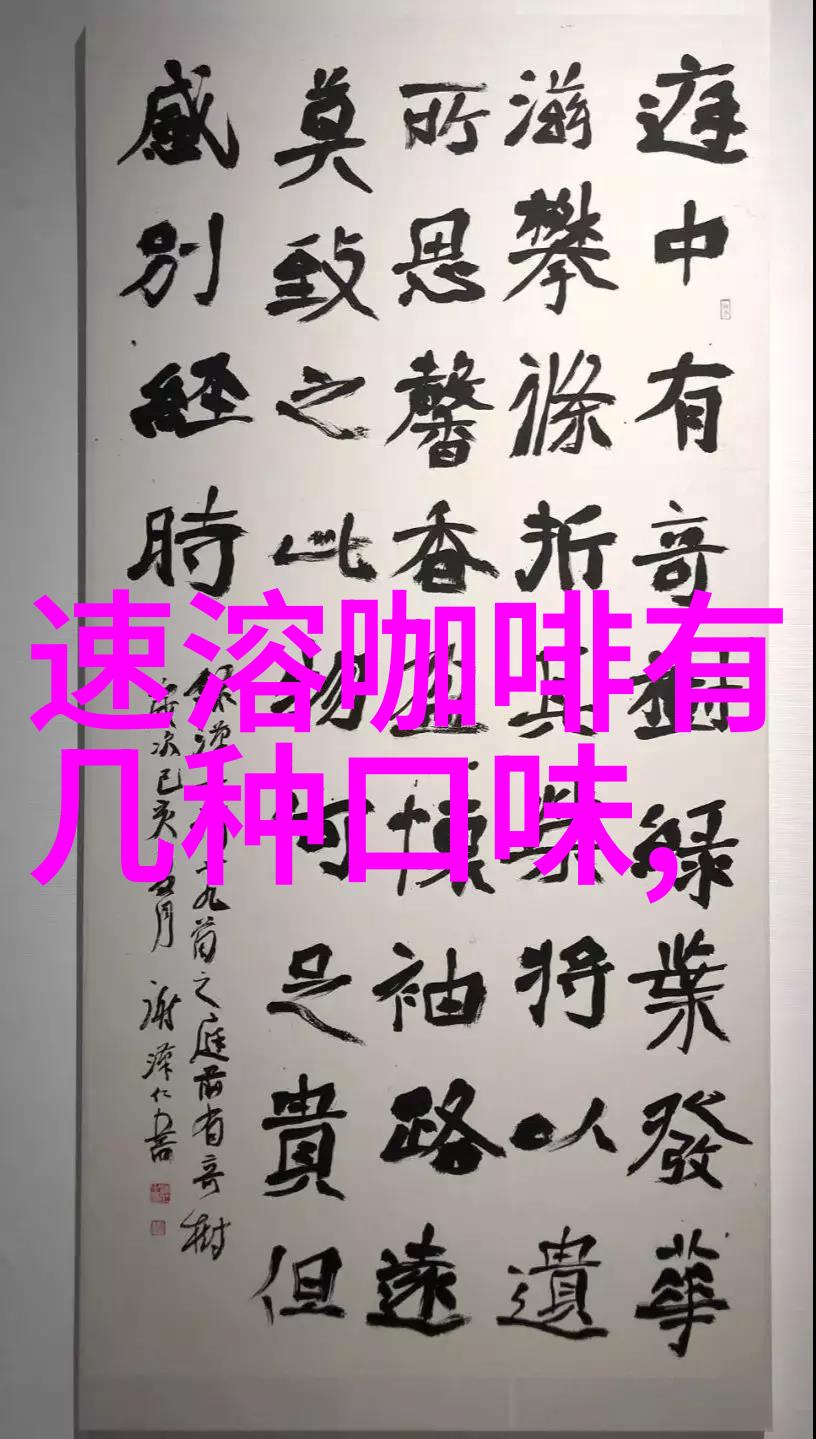 庭中有奇樹綠葉發華
滋攀條折其榮將以遺
所思馨香盈懷袖路遠
莫致之此物何足貴但
感別經時
十九首之庭前有奇樹
歲次己亥月謝澤仁書
速溶咖啡有
几种口味,